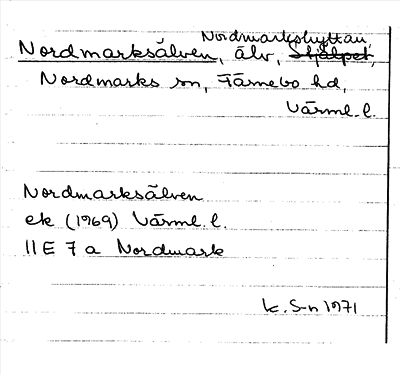 Nordmarkshyttan,
Nordmarksälven, älv, Stjälpet,
Nordmarks sn, Färnebo hd,
Värml. l.
Nordmarksälven
ek (1969) Värml. l.
11E 7a Nordmark
K. S-n 1971